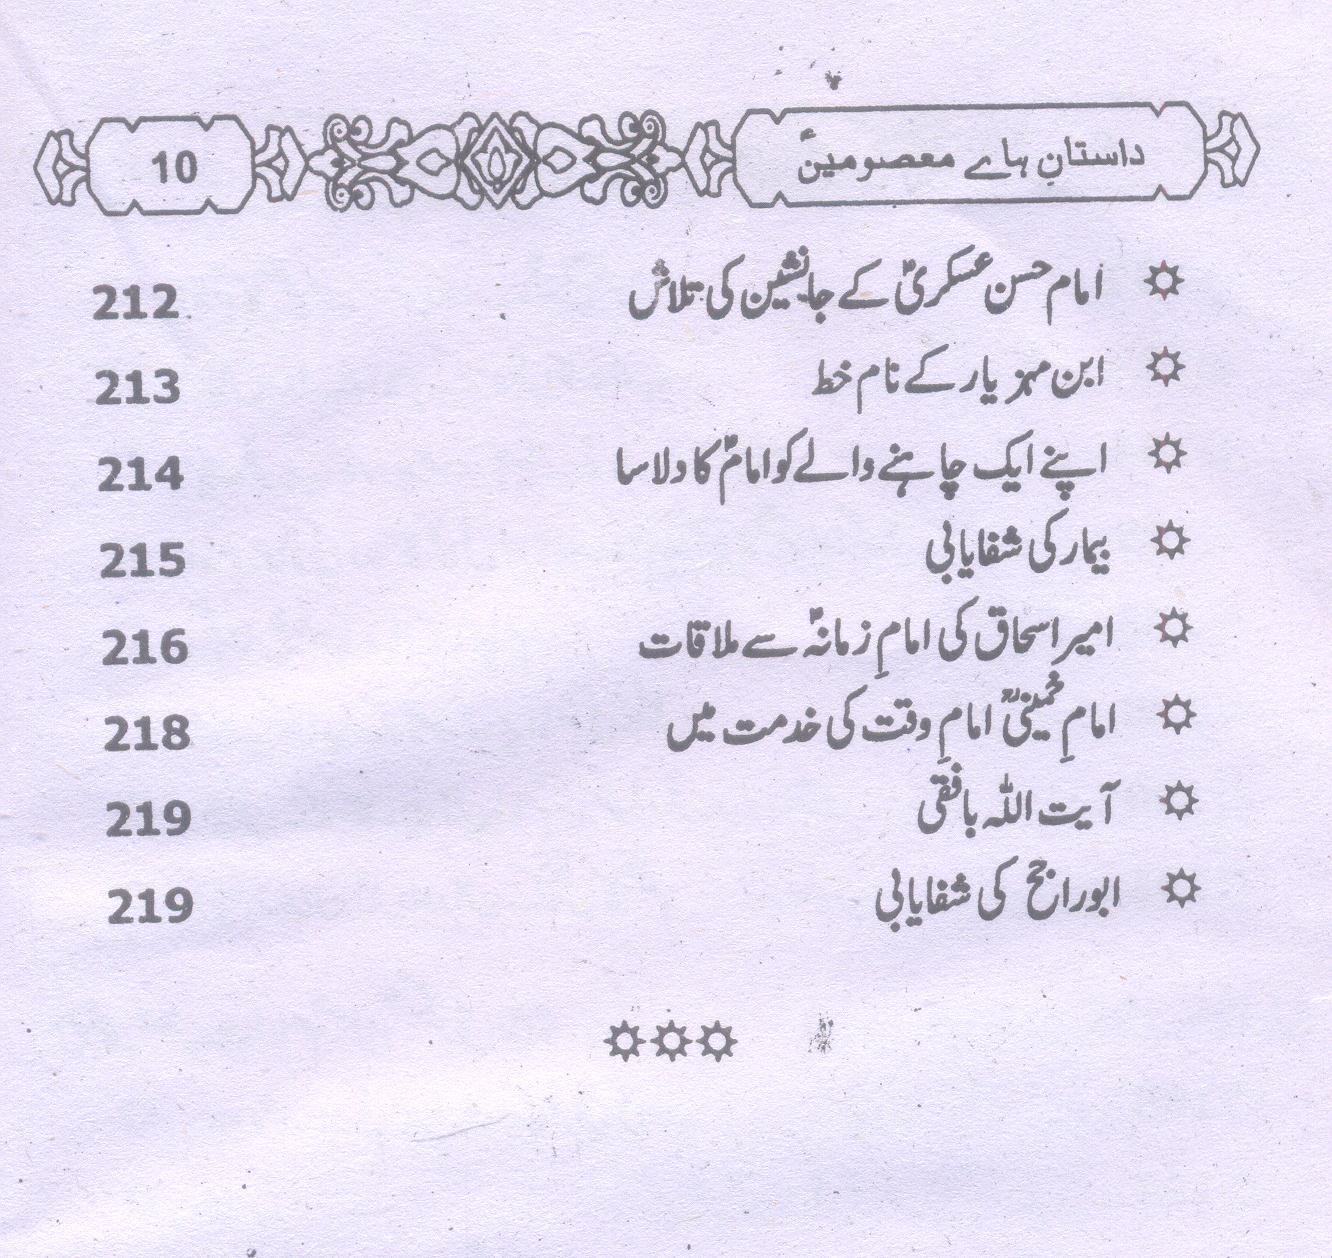 داستانِ ہاے معصومینؑ 10
امام حسن عسکریؑ کے جانشین کی تلاش 212
ابن مہزیار کے نام خط 213
اپنے ایک چاہنے والے کو امامؑ کا دلاسا 214
بیمار کی شفایابی 215
امیر اسحاق کی امامِ زمانہؑ سے ملاقات 216
امامِ خمینیؒ امامِ وقت کی خدمت میں 218
آیت اللہ بافقی 219
ابوراجح کی شفایابی 219